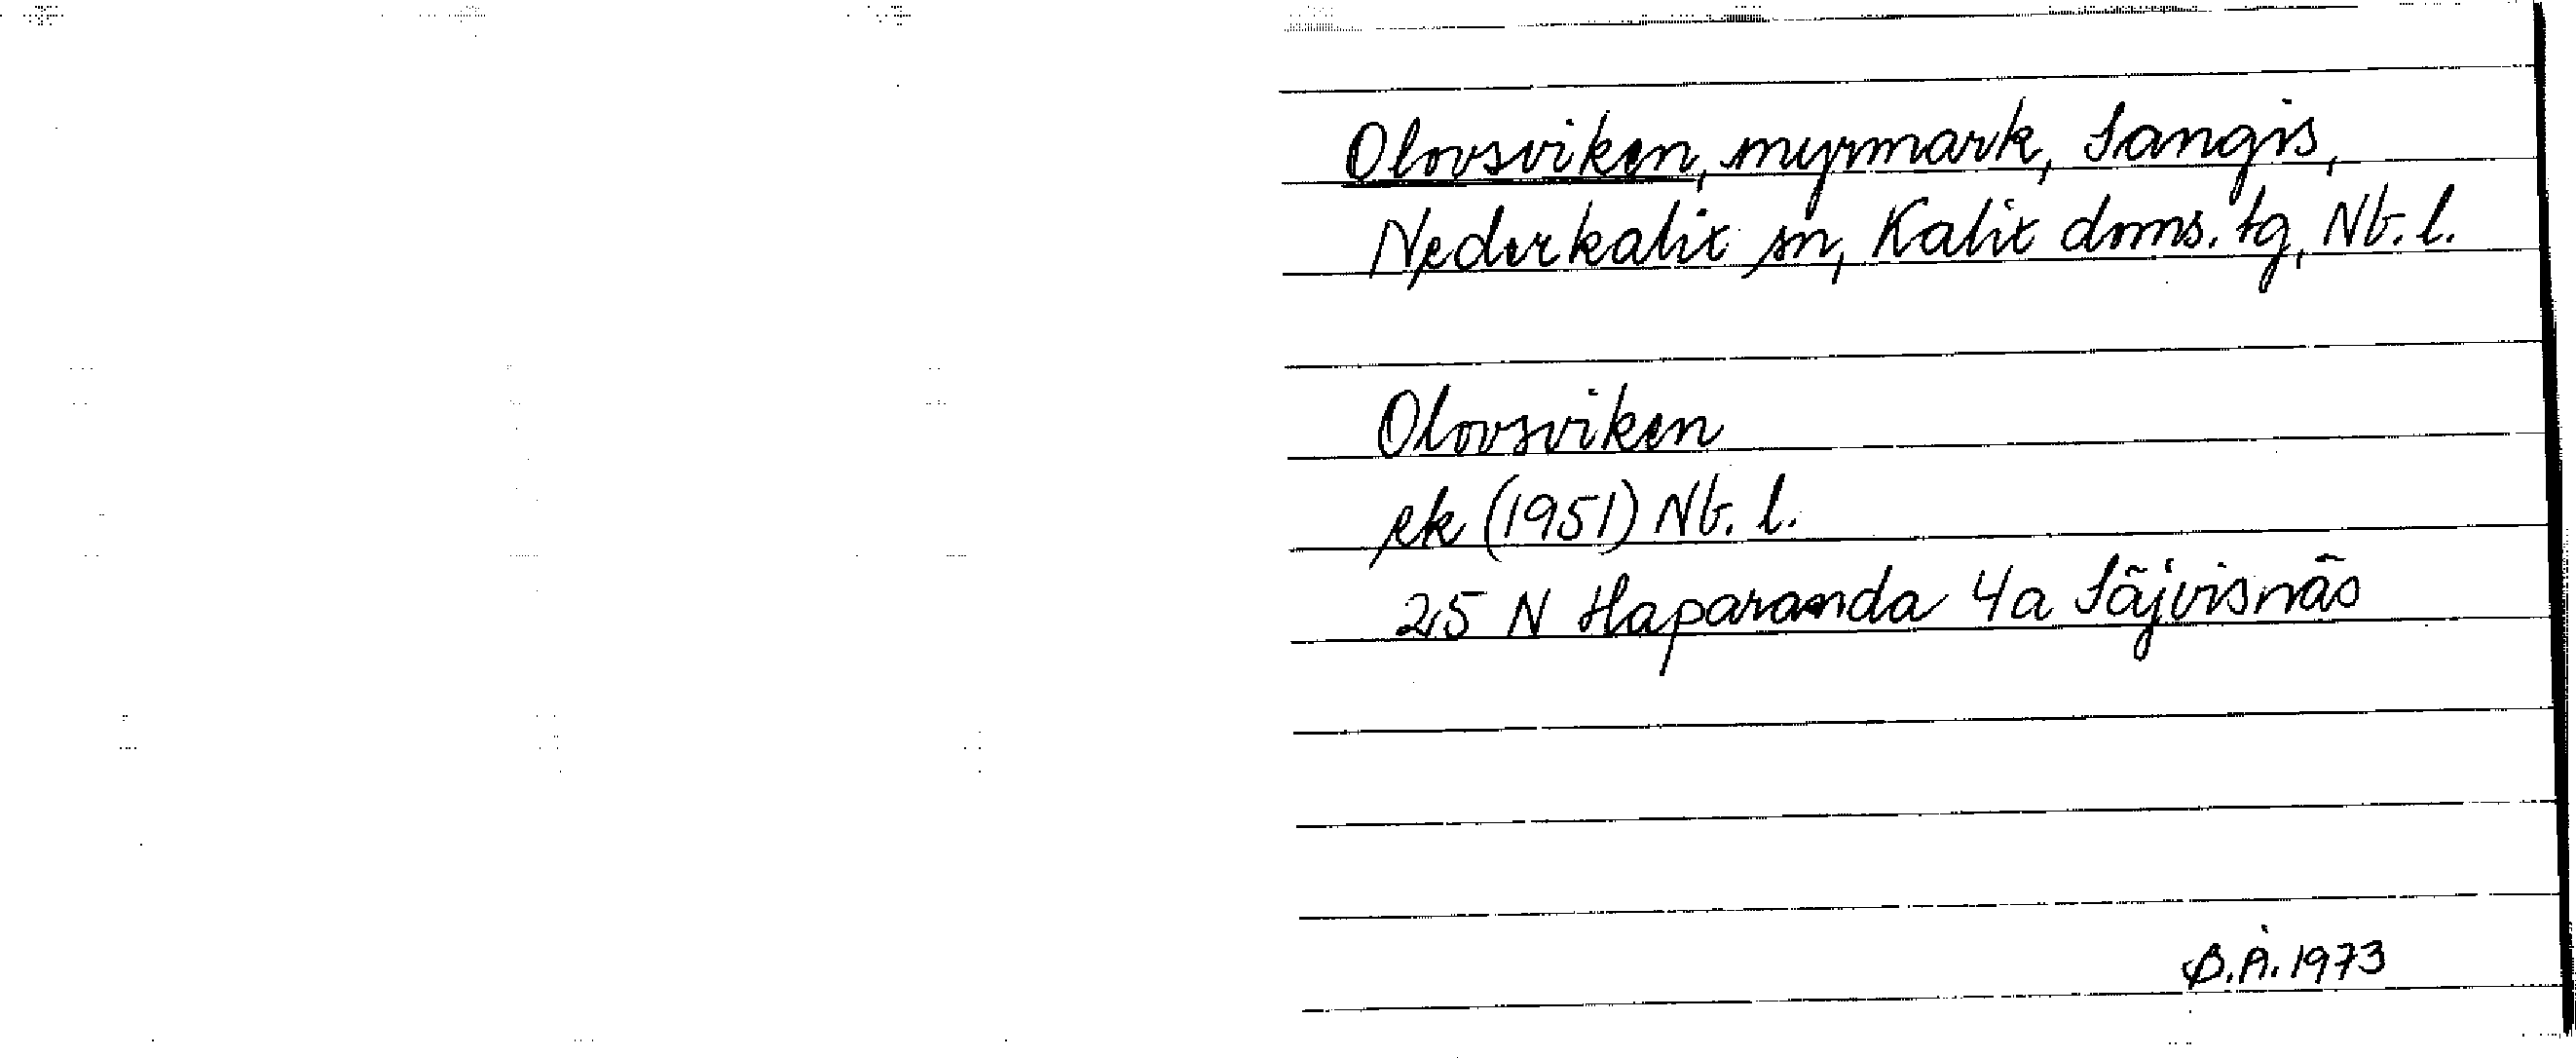 Olovsviken, myrmark, Sangis,
Nederkalix sn, Kalix doms. tg, Nb. l.
Olovsviken
ek (1951) Nb. l.
25 N Haparanda 4a Säjvisnäs
B.Å. 1973